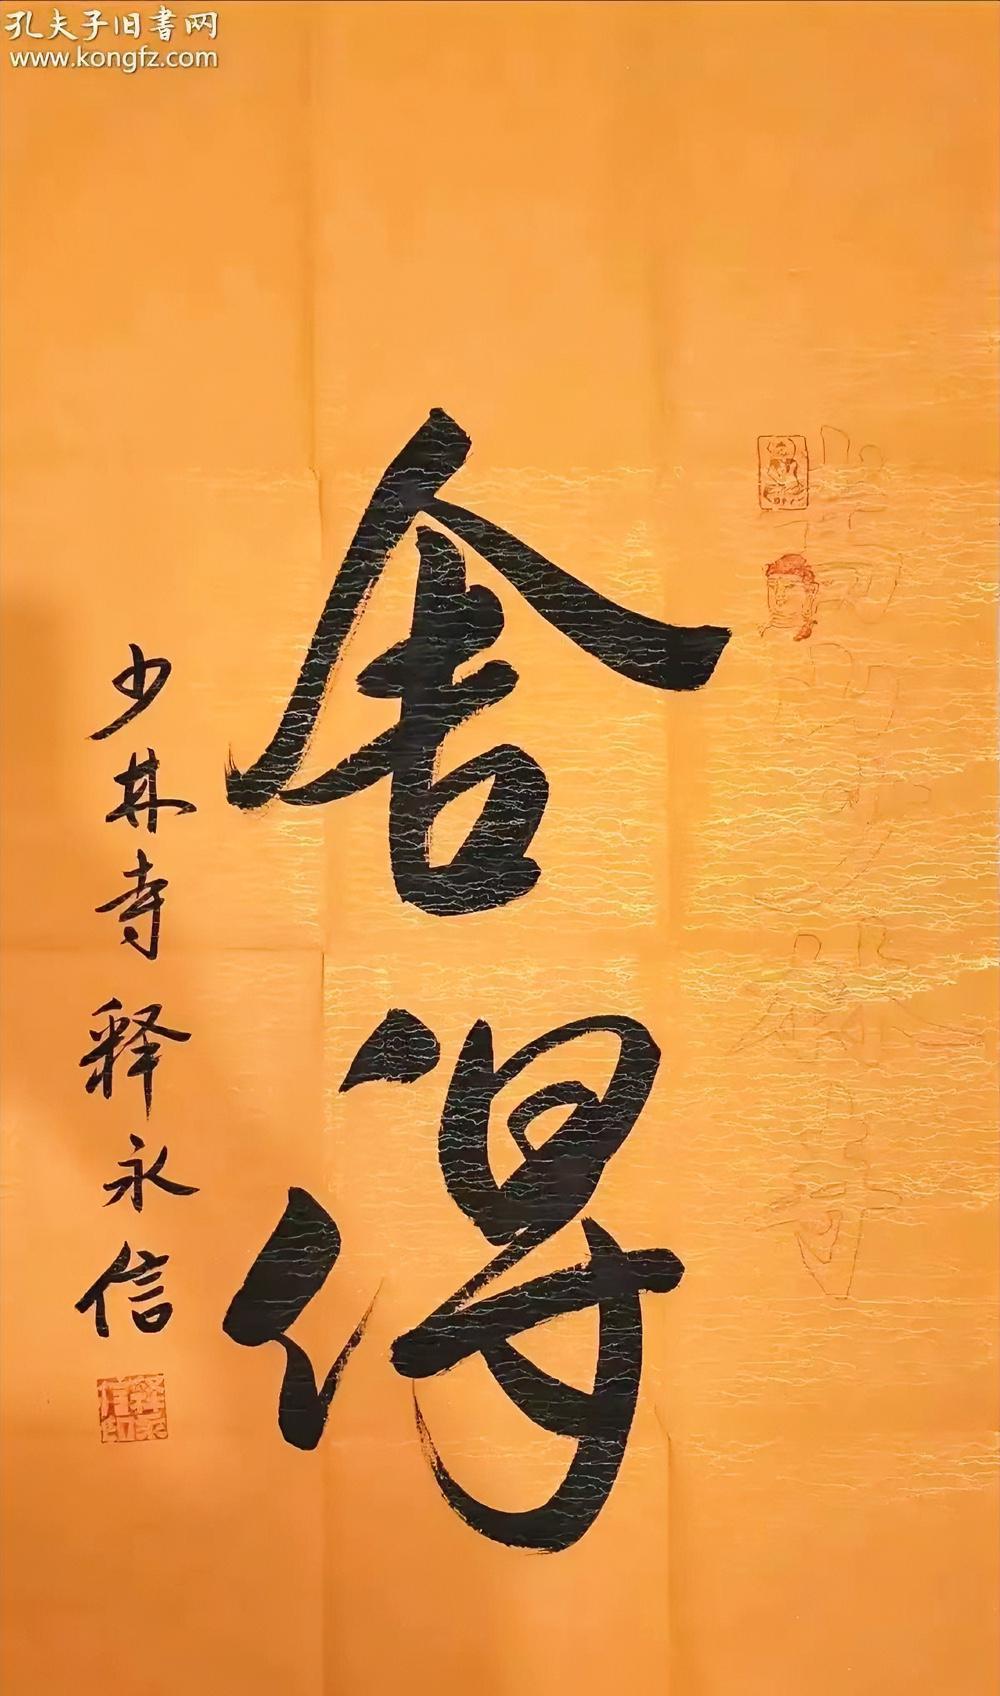 孔夫子旧書网
www.kongfz.com
舍得
少林寺 释永信
释永信印